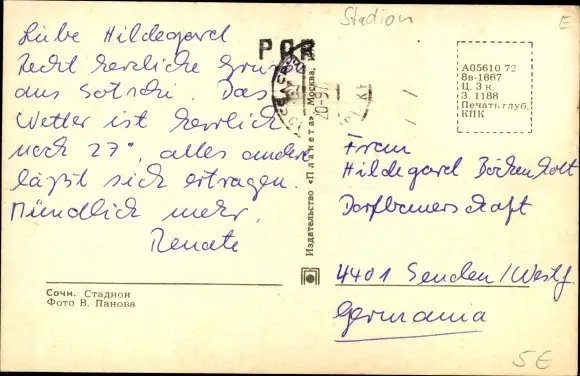 Stadion
E
Liebe Hildegard
Recht herzliche Grüße
aus Sotschi. Das
Wetter ist herrlich
noch 27°, alles andere
läßt sich ertragen.
Mündlich mehr,
Renate
PAR
Сочи. Стадион
Фото В. Панова
Издательство «Планета», Москва,
А05610 72
8в-1667
Ц. 3 к.
З. 1188
Печать глуб.
КПК
Frau
Hildegard Böckenholt
Dorfbauerschaft
4401 Senden/Westf.
Germania
5 E